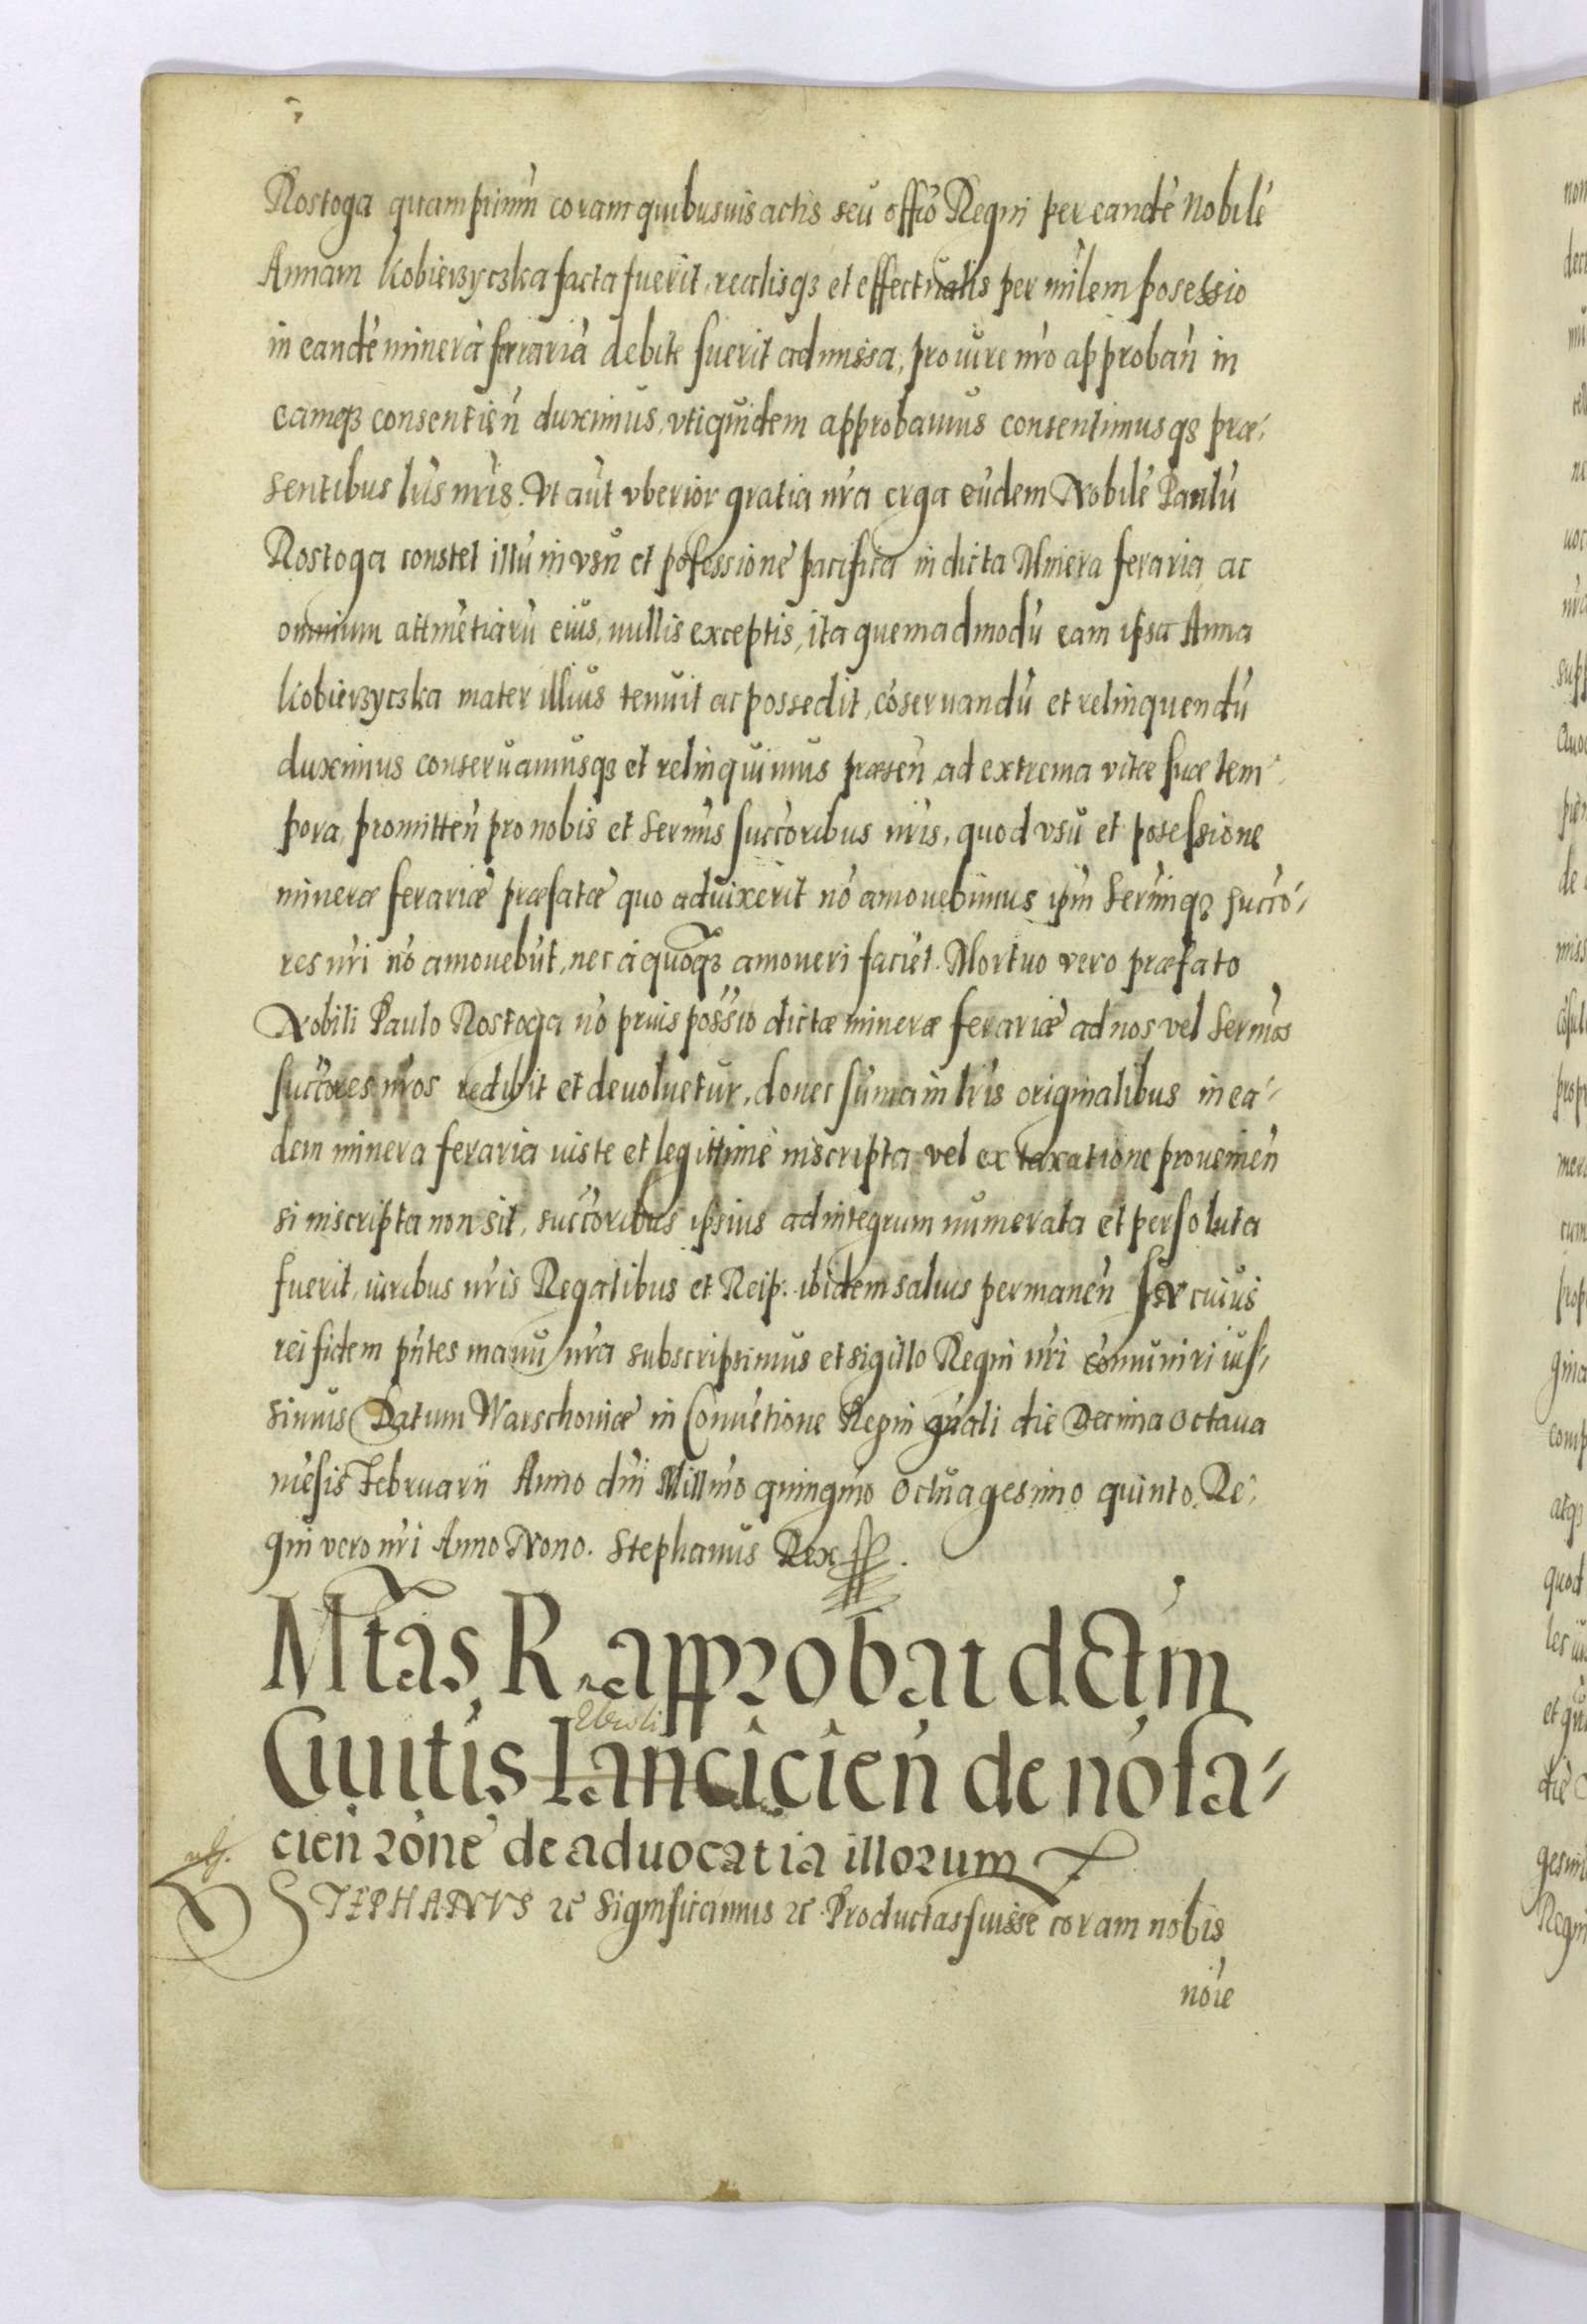 Rostoga quamprimū coram quibusuis actis seu offō Regni per eandē Nobilē
Annam Kobierzyczka facta fuerit, realisqȝ et effectualis per mīlem posessio
in eandē minerā ferrariā debite fuerit admissa, pro iure nr̄o approbān in
eamqȝ consentień duximus, vtiquidem approbamus consentimusqȝ præ-
sentibus lr̄is nr̄is. Vt aūt vberior gratia nr̄a erga eūdem Nobilē Paulū
Rostoga constet illū in vsū et posessionē pacifica in dicta Minera feraria, ac
omnium attinētiarū eius, nullis exceptis, ita quemadmodū eam ipsa Anna
Kobierzyczka mater illius tenuit ac possedit, cōseruandū et relinquendū
duximus conseruamusqȝ et relinquimus præsen̄ ad extrema vitæ suæ tem-
pora, promitten̄ pro nobis et Serm̄is succōribus nr̄is, quod vsū et posessione
mineræ ferariæ præfatæ quo aduixerit nō amouebimus ip̄m Serm̄iqȝ succō-
res nr̄i nō amouebūt, nec à quoqȝ amoueri faciēt. Mortuo vero præfato
Nobili Paulo Rostoga nō prius poss̄io dictæ mineræ ferariæ ad nos vel Serm̄os
succōres nr̄os redibit et deuoluetur, donec sum̄a in lr̄is originalibus in ea-
dem minera feraria iuste et legittimè inscripta vel ex taxatione prouenien̄
si inscripta non sit, succōribus ipsius ad integrum numerata et persoluta
fuerit, iuribus nr̄is Regalibus et Reip. ibidem saluis permanen̄ In cuius
rei fidem pn̄tes manu nr̄a subscripsimus et sigillo Regni nr̄i com̄uniri ius-
simus Datum Warschouiæ in Conuētione Regni gn̄ali die Decima octaua
mēsis Februarii Anno dn̄i Millm̄o quingm̄o octuagesimo quinto. Re-
gni vero nr̄i Anno Nono. Stephanus Rex
Mtas R. approbat dctm̄
Ciuitīs Lancicień de nō fa-
cień zōnē de aduocatia illorum
STEPHANVS ꝛc Significamus ꝛc Productas fuisse coram nobis
nōie